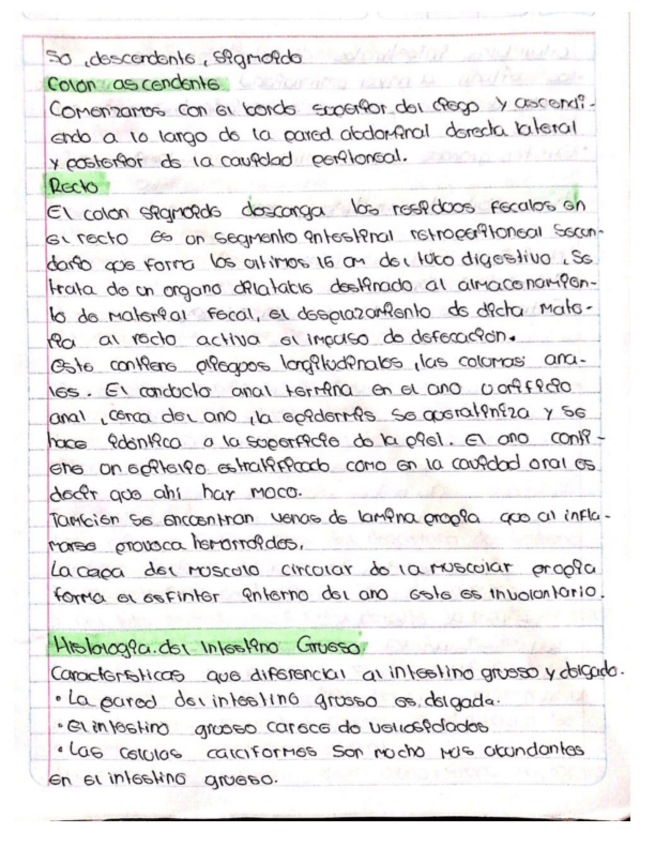 so, descendente, sigmoido
Colon ascendente
Comenzamos con el borde superior del ciego y ascendi-
endo a lo largo de la pared abdominal derecha lateral
y posterior de la cavidad peritoneal.
Recto
El colon sigmoide descarga los residuos fecales en
el recto es un segmento intestinal retroperitoneal secun-
dario que forma los ultimos 15 cm del tubo digestivo, se
trata de un organo dilatable destinado al almacenamien-
to de material fecal, el desplazamiento de dicta mate-
ria al recto activa el impulso de defecación.
este contiene pliegues longitudinales, las columnas ana-
les. El conducto anal termina en el ano u orificio
anal, cerca del ano, la epidermis se queratiniza y se
hace identica a la superficie de la piel. El ano conti-
ene un epitelio estratificado como en la cavidad oral es
decir que ahi hay moco.
También se encuentran venas de lamina propia que al infla-
marse provoca hemorroides.
La capa del musculo circular de la muscular propia
forma el esfinter interno del ano este es involuntario.
Histologia del Intestino Grueso
Caracteristicas que diferencial al intestino grueso y delgado.
• La pared del intestino grueso es delgada.
• El intestino grueso carece de vellosidades
• Las celulas calciformes son mucho mas abundantes
en el intestino grueso.